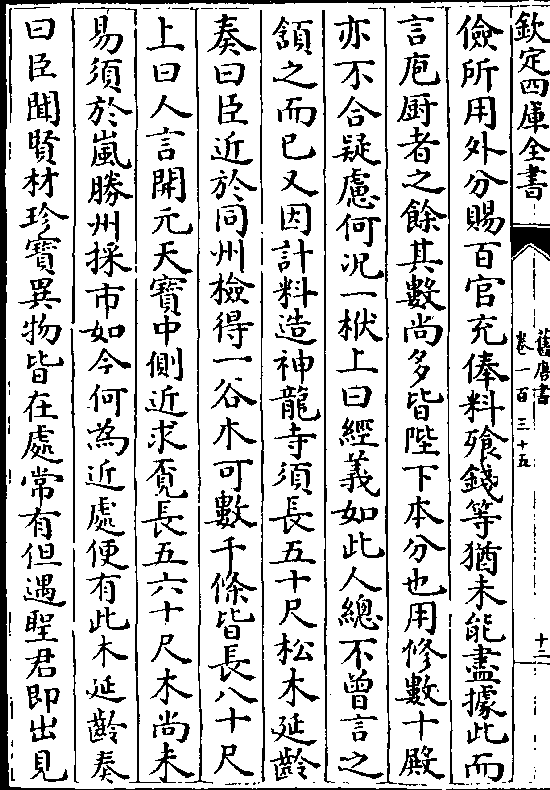 欽定四庫全書
舊唐書
卷一百三十五
十二
儉所用外分賜百官充俸料飱錢等猶未能盡據此而
言庖厨者之餘其數尚多皆陛下本分也用修數十殿
亦不合疑慮何況一栿上曰經義如此人總不曾言之
頷之而已又因計料造神龍寺須長五十尺松木延齡
奏曰臣近於同州檢得一谷木可數千條皆長八十尺
上曰人言開元天寶中側近求覓長五六十尺木尚未
易須於嵐勝州採市如今何為近處便有此木延齡奏
曰臣聞賢材珍寶異物皆在處常有但遇聖君即出見